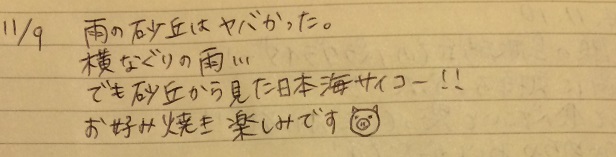 11/9 雨の砂丘はヤバかった。
横なぐりの雨…
でも砂丘から見た日本海サイコー!!
お好み焼き楽しみです